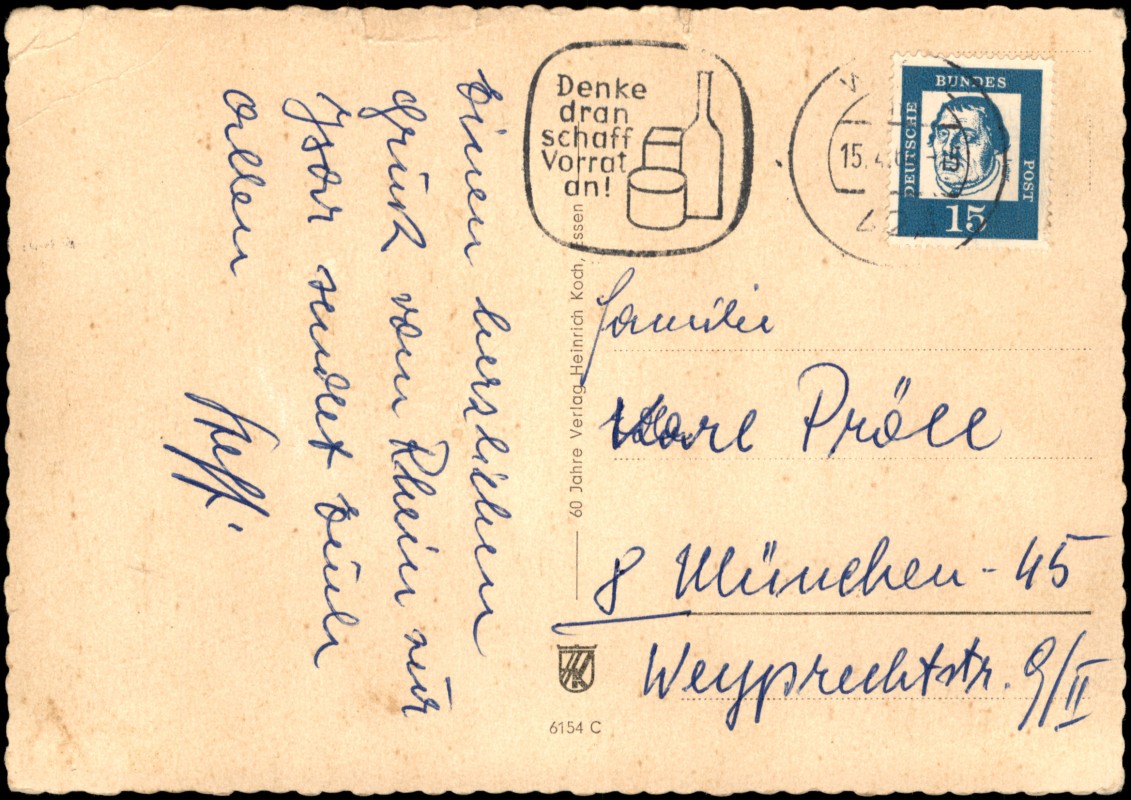 Einen herzlichen
Gruß vom Rhein zur
Isar sendet Euch
allen
Steff.
Denke
dran
schaff
Vorrat
an!
15.4.
DEUTSCHE
BUNDES
POST
15
60 Jahre Verlag Heinrich Koch, Essen
Familie
Karl Pröll
8 München-45
Weyprechtstr. 9/II
6154 C